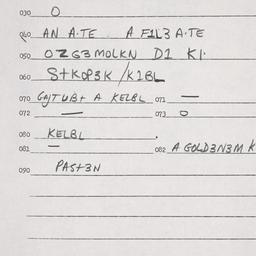 030 O
040 AN A·TE A F1L3 A·TE
050 OZG3MOLKN D1 K1·
060 S+KOP3K/K1BL
070 GAJTUB+ A KELBL 071 —
072 — 073 O
080 KELBL
081 — 082 A GOLD3N3M K
090 PAS+3N